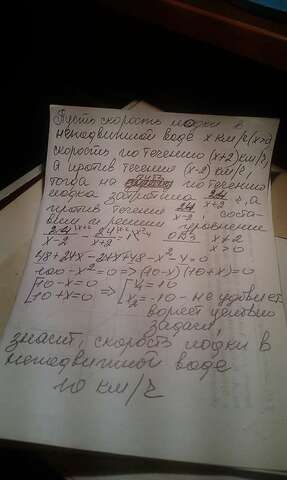 Пусть скорость лодки в
неподвижной воде x км/ч (x>0)
скорость по течению (x+2) км/ч,
а против течения (x-2) км/ч,
тогда на путь по течению
лодка затратила 24/x+2 ч, а
против течения 24/x-2, соста-
вим и решим уравнение
24/x-2 - 24/x+2 = 1 ОДЗ x≠2
x>0
48+24x-24x+48-x²+4=0
100-x²=0 => (10-x)(10+x)=0
[10-x=0 => [x₁=10
[10+x=0 [x₂=-10 - не удовлет
воряет условию
задачи,
значит, скорость лодки в
неподвижной воде
10 км/ч